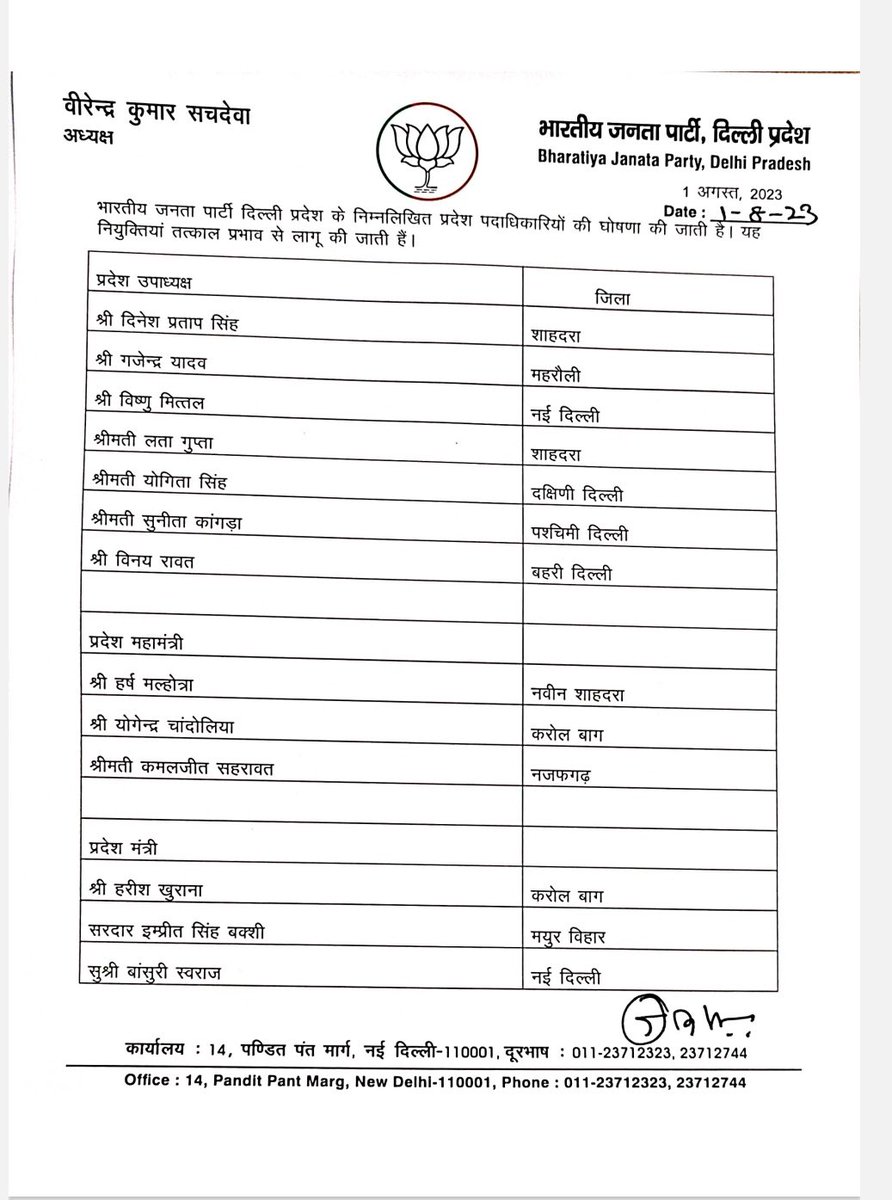 वीरेन्द्र कुमार सचदेवा
अध्यक्ष
भारतीय जनता पार्टी, दिल्ली प्रदेश
Bharatiya Janata Party, Delhi Pradesh
1 अगस्त, 2023
Date : 1-8-23
भारतीय जनता पार्टी दिल्ली प्रदेश के निम्नलिखित प्रदेश पदाधिकारियों की घोषणा की जाती है। यह
नियुक्तियां तत्काल प्रभाव से लागू की जाती हैं।
प्रदेश उपाध्यक्ष जिला
श्री दिनेश प्रताप सिंह शाहदरा
श्री गजेन्द्र यादव महरौली
श्री विष्णु मित्तल नई दिल्ली
श्रीमती लता गुप्ता शाहदरा
श्रीमती योगिता सिंह दक्षिणी दिल्ली
श्रीमती सुनीता कांगड़ा पश्चिमी दिल्ली
श्री विनय रावत बहरी दिल्ली
प्रदेश महामंत्री
श्री हर्ष मल्होत्रा नवीन शाहदरा
श्री योगेन्द्र चांदोलिया करोल बाग
श्रीमती कमलजीत सहरावत नजफगढ़
प्रदेश मंत्री
श्री हरीश खुराना करोल बाग
सरदार इम्प्रीत सिंह बक्शी मयुर विहार
सुश्री बांसुरी स्वराज नई दिल्ली
कार्यालय : 14, पण्डित पंत मार्ग, नई दिल्ली-110001, दूरभाष : 011-23712323, 23712744
Office : 14, Pandit Pant Marg, New Delhi-110001, Phone : 011-23712323, 23712744